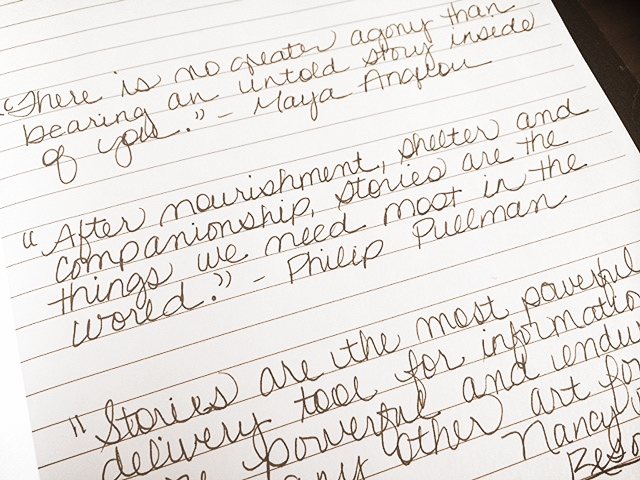 "There is no greater agony than
bearing an untold story inside
of you." - Maya Angelou
"After nourishment, shelter and
companionship, stories are the
things we need most in the
world." - Philip Pullman
"Stories are the most powerful
delivery tool for informatio
powerful and endu
any other art for
Nancy